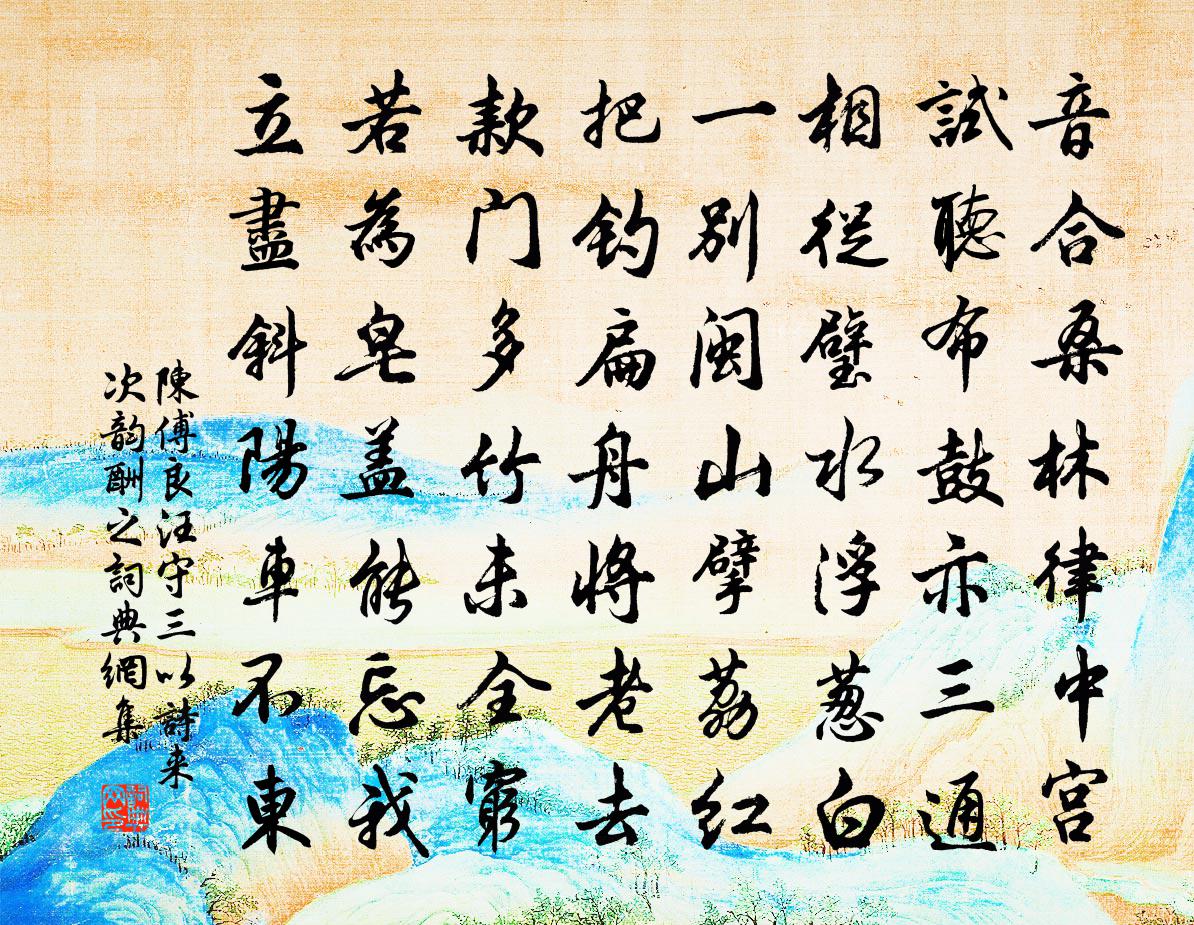 音合桑林律中宫
試聽布鼓亦三通
相從璧水浮葱白
一別闽山擘荔红
把钓扁舟将老去
款门多竹未全窮
若為皂盖能忘我
立盡斜陽車不東
陳傅良汪守三以詩来
次韵酬之詞典網集